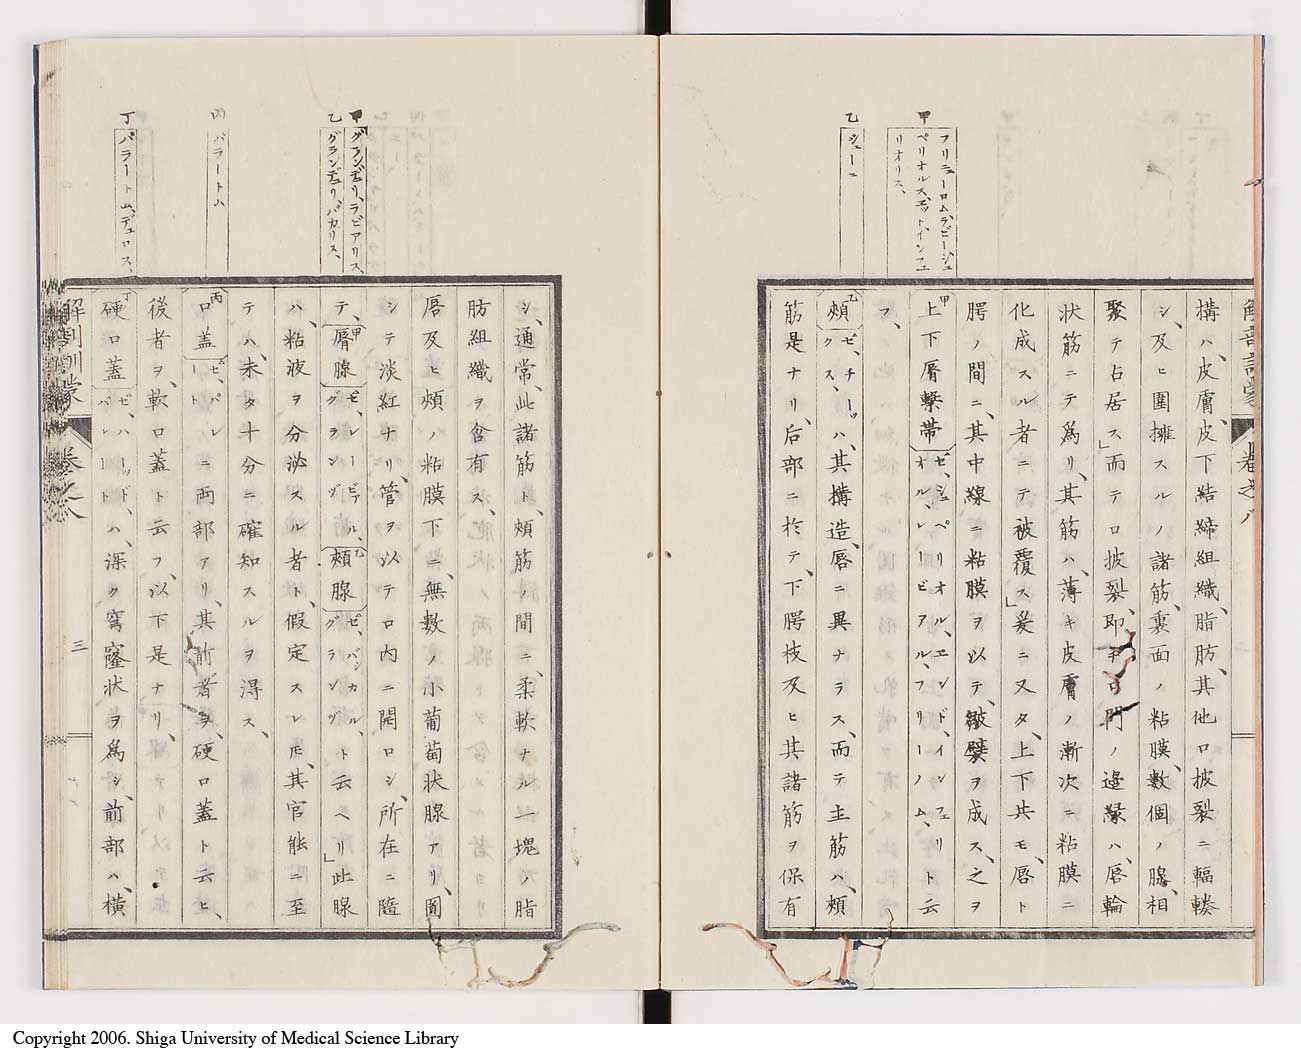 甲
フリニューロム、ラビージュ
ペリオルス、エット、インフェ
リオリス、
乙
ジューニ
構ハ、皮膚、皮下結締組織、脂肪、其他口披裂ニ輻輳
シ、及ヒ圍擁スルノ諸筋、裏面ノ粘膜、數個ノ腺、相
聚テ占居ス」而テ口披裂、即チ口門ノ邉縁ハ、唇輪
状筋ニテ爲リ、其筋ハ、薄キ皮膚ノ漸次ニ粘膜ニ
化成スル者ニテ被覆ス」爰ニ又タ、上下共モ、唇ト
腭ノ間ニ、其中線ニ粘膜ヲ以テ、皺襞ヲ成ス、之ヲ
甲上下脣繋帶ゼ、シュペリオル、エンド、インフェリオル、レービアル、フリーノム、ト云
フ、
乙頰ゼ、チークス、ハ、其構造、唇ニ異ナラス、而テ主筋ハ、頰
筋是ナリ、后部ニ於テ、下腭枝及ヒ其諸筋ヲ保有
解剖訓蒙 卷之八
甲
グランデュリ、ラビアリス、
乙
グランデュリ、バカリス、
丙
パラートム
丁
パラートム、デュロス、
シ、通常、此諸筋ト、頰筋ノ間ニ、柔軟ナル一塊ノ脂
肪組織ヲ含有ス、
唇及ヒ頰ノ粘膜下ニ、無數ノ小葡萄状腺アリ、圎
シテ淡紅ナリ、管ヲ以テ口内ニ開口シ、所在ニ隨
テ、甲脣腺ゼ、レービアル、グランヅ、乙頰腺ゼ、バッカル、グランヅ、ト云ヘリ」此腺
ハ、粘液ヲ分泌スル者ト、假定スレ𪜈、其官能ニ至
テハ、未タ十分ニ確知スルヲ得ス、
丙口蓋ゼ、パレート、ニ両部アリ、其前者ヲ、硬口蓋ト云ヒ、
後者ヲ、軟口蓋ト云フ、以下是ナリ、
丁硬口蓋ゼ、ハード、パレート、ハ、深ク穹窿状ヲ爲シ、前部ハ、横
解剖訓蒙 卷之八 三
Copyright 2006. Shiga University of Medical Science Library